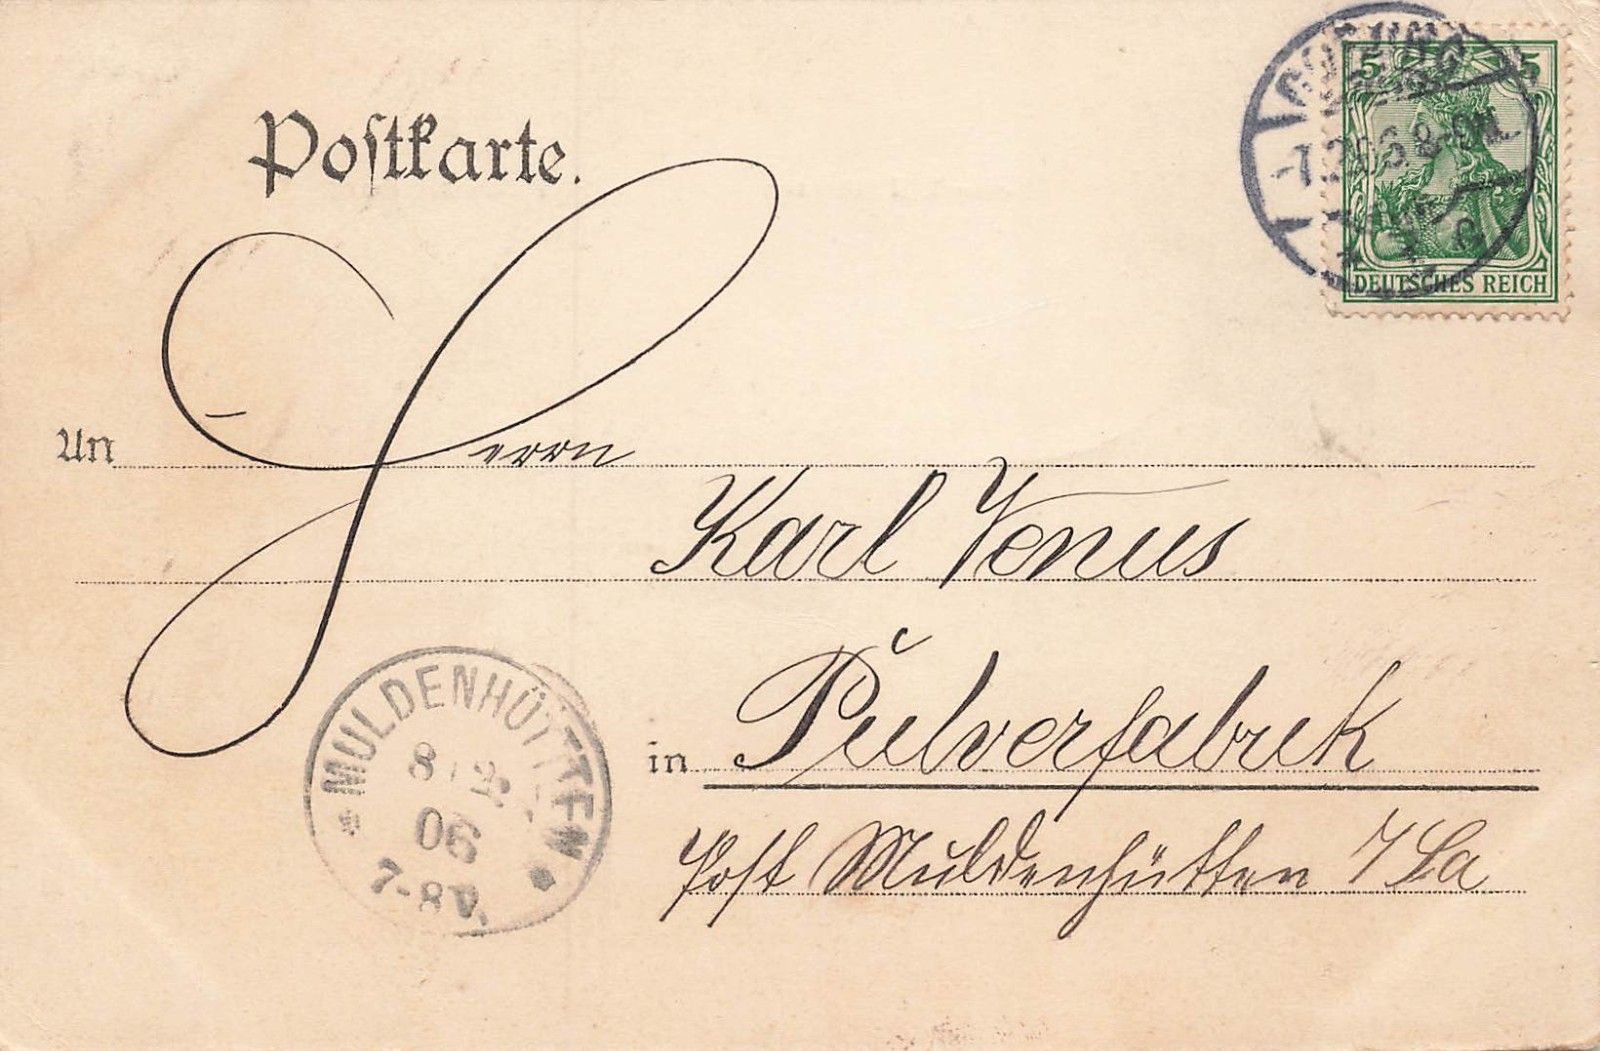 Postkarte.
5 5
COBURG
-7.2.06. 8-9N.
DEUTSCHES REICH
An Herrn
Karl Venus
in Pulverfabrik
Post Muldenhütten
MULDENHÜTTEN
8 2
06
7-8V.